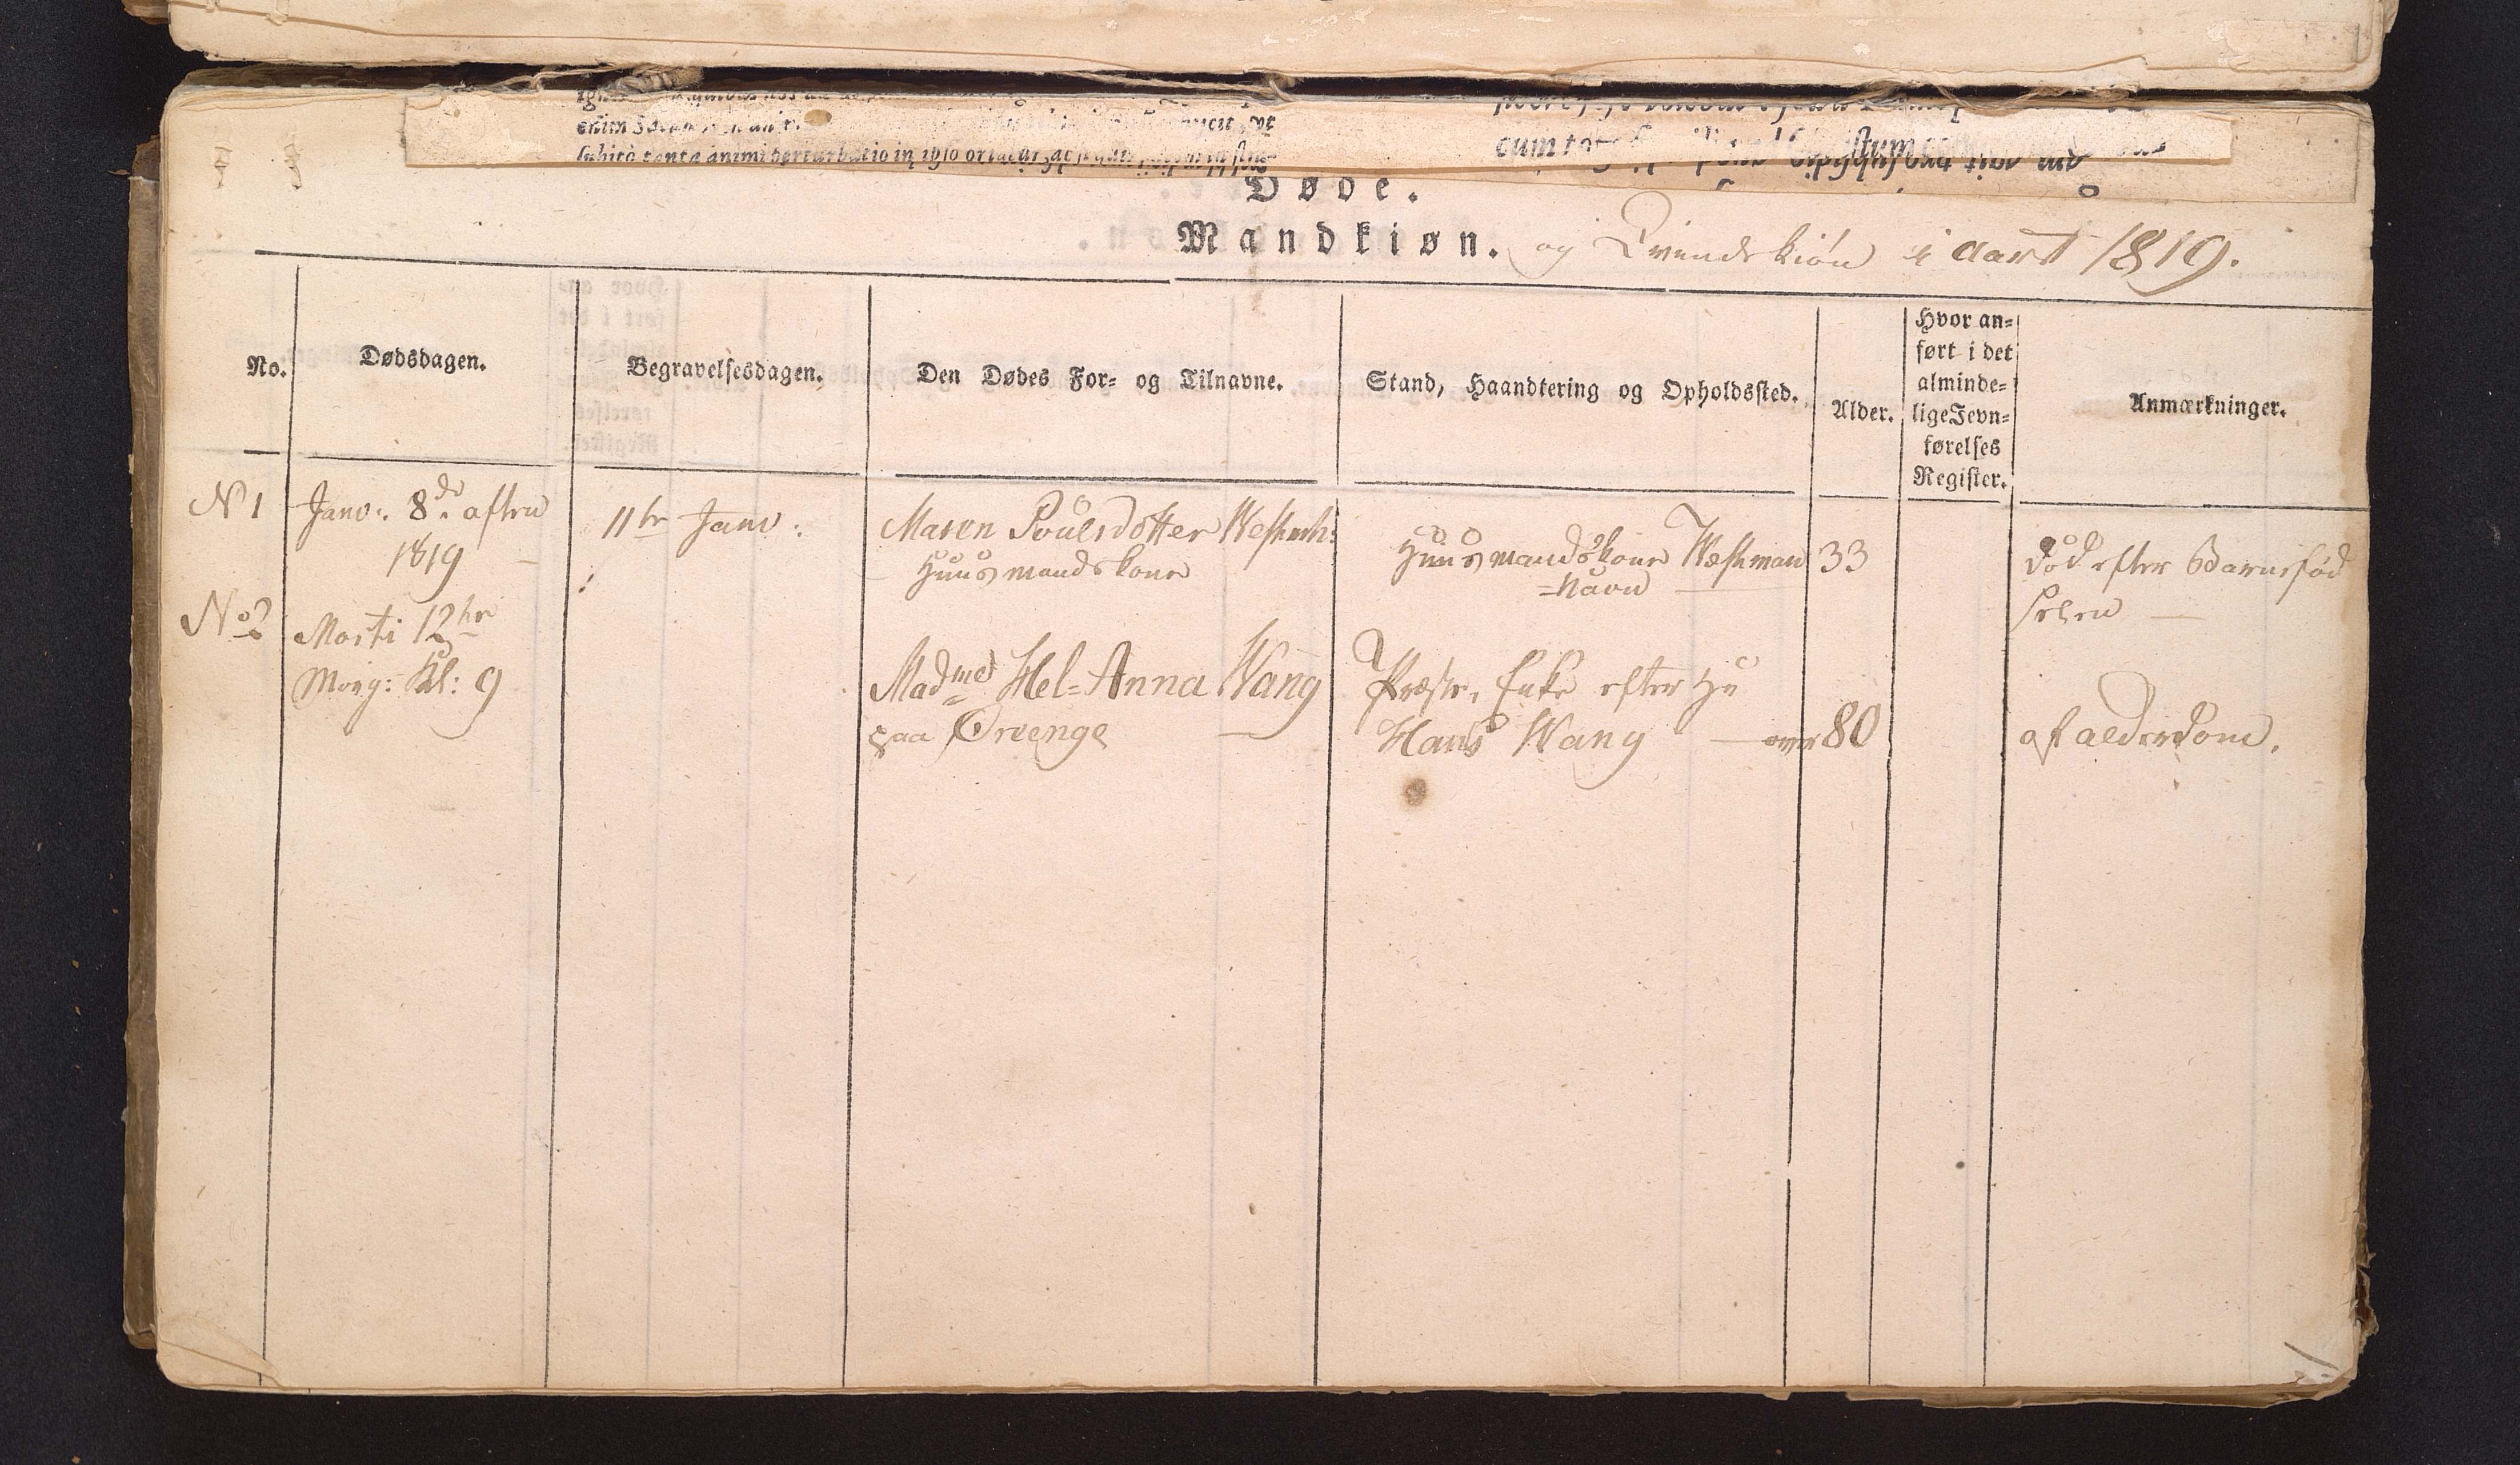 Døde.
Mandkiøn. og Qvindekiøn i aaret 1819.
No.
Dødsdagen.
Begravelsesdagen.
Den Dødes For- og Tilnavne.
Stand, Haandtering og Opholdssted.
Alder.
Hvor an-
ført i det
alminde-
lige Jevn-
førelses
Register.
Anmærkninger.
N 1
Janv: 8de aften
1819
11te Janv:
Maren Poulsdotter
Huusmandskone
Huusmandskone Westman
=Navn
33
død efter Barnefød
selen
No 2
Marti 12te
Morg: Kl: 9
Madme Hel=Anna Wang
paa Øreenge
Præste, Enke efter Hr
Hans Wang
over 80
af alderdom.